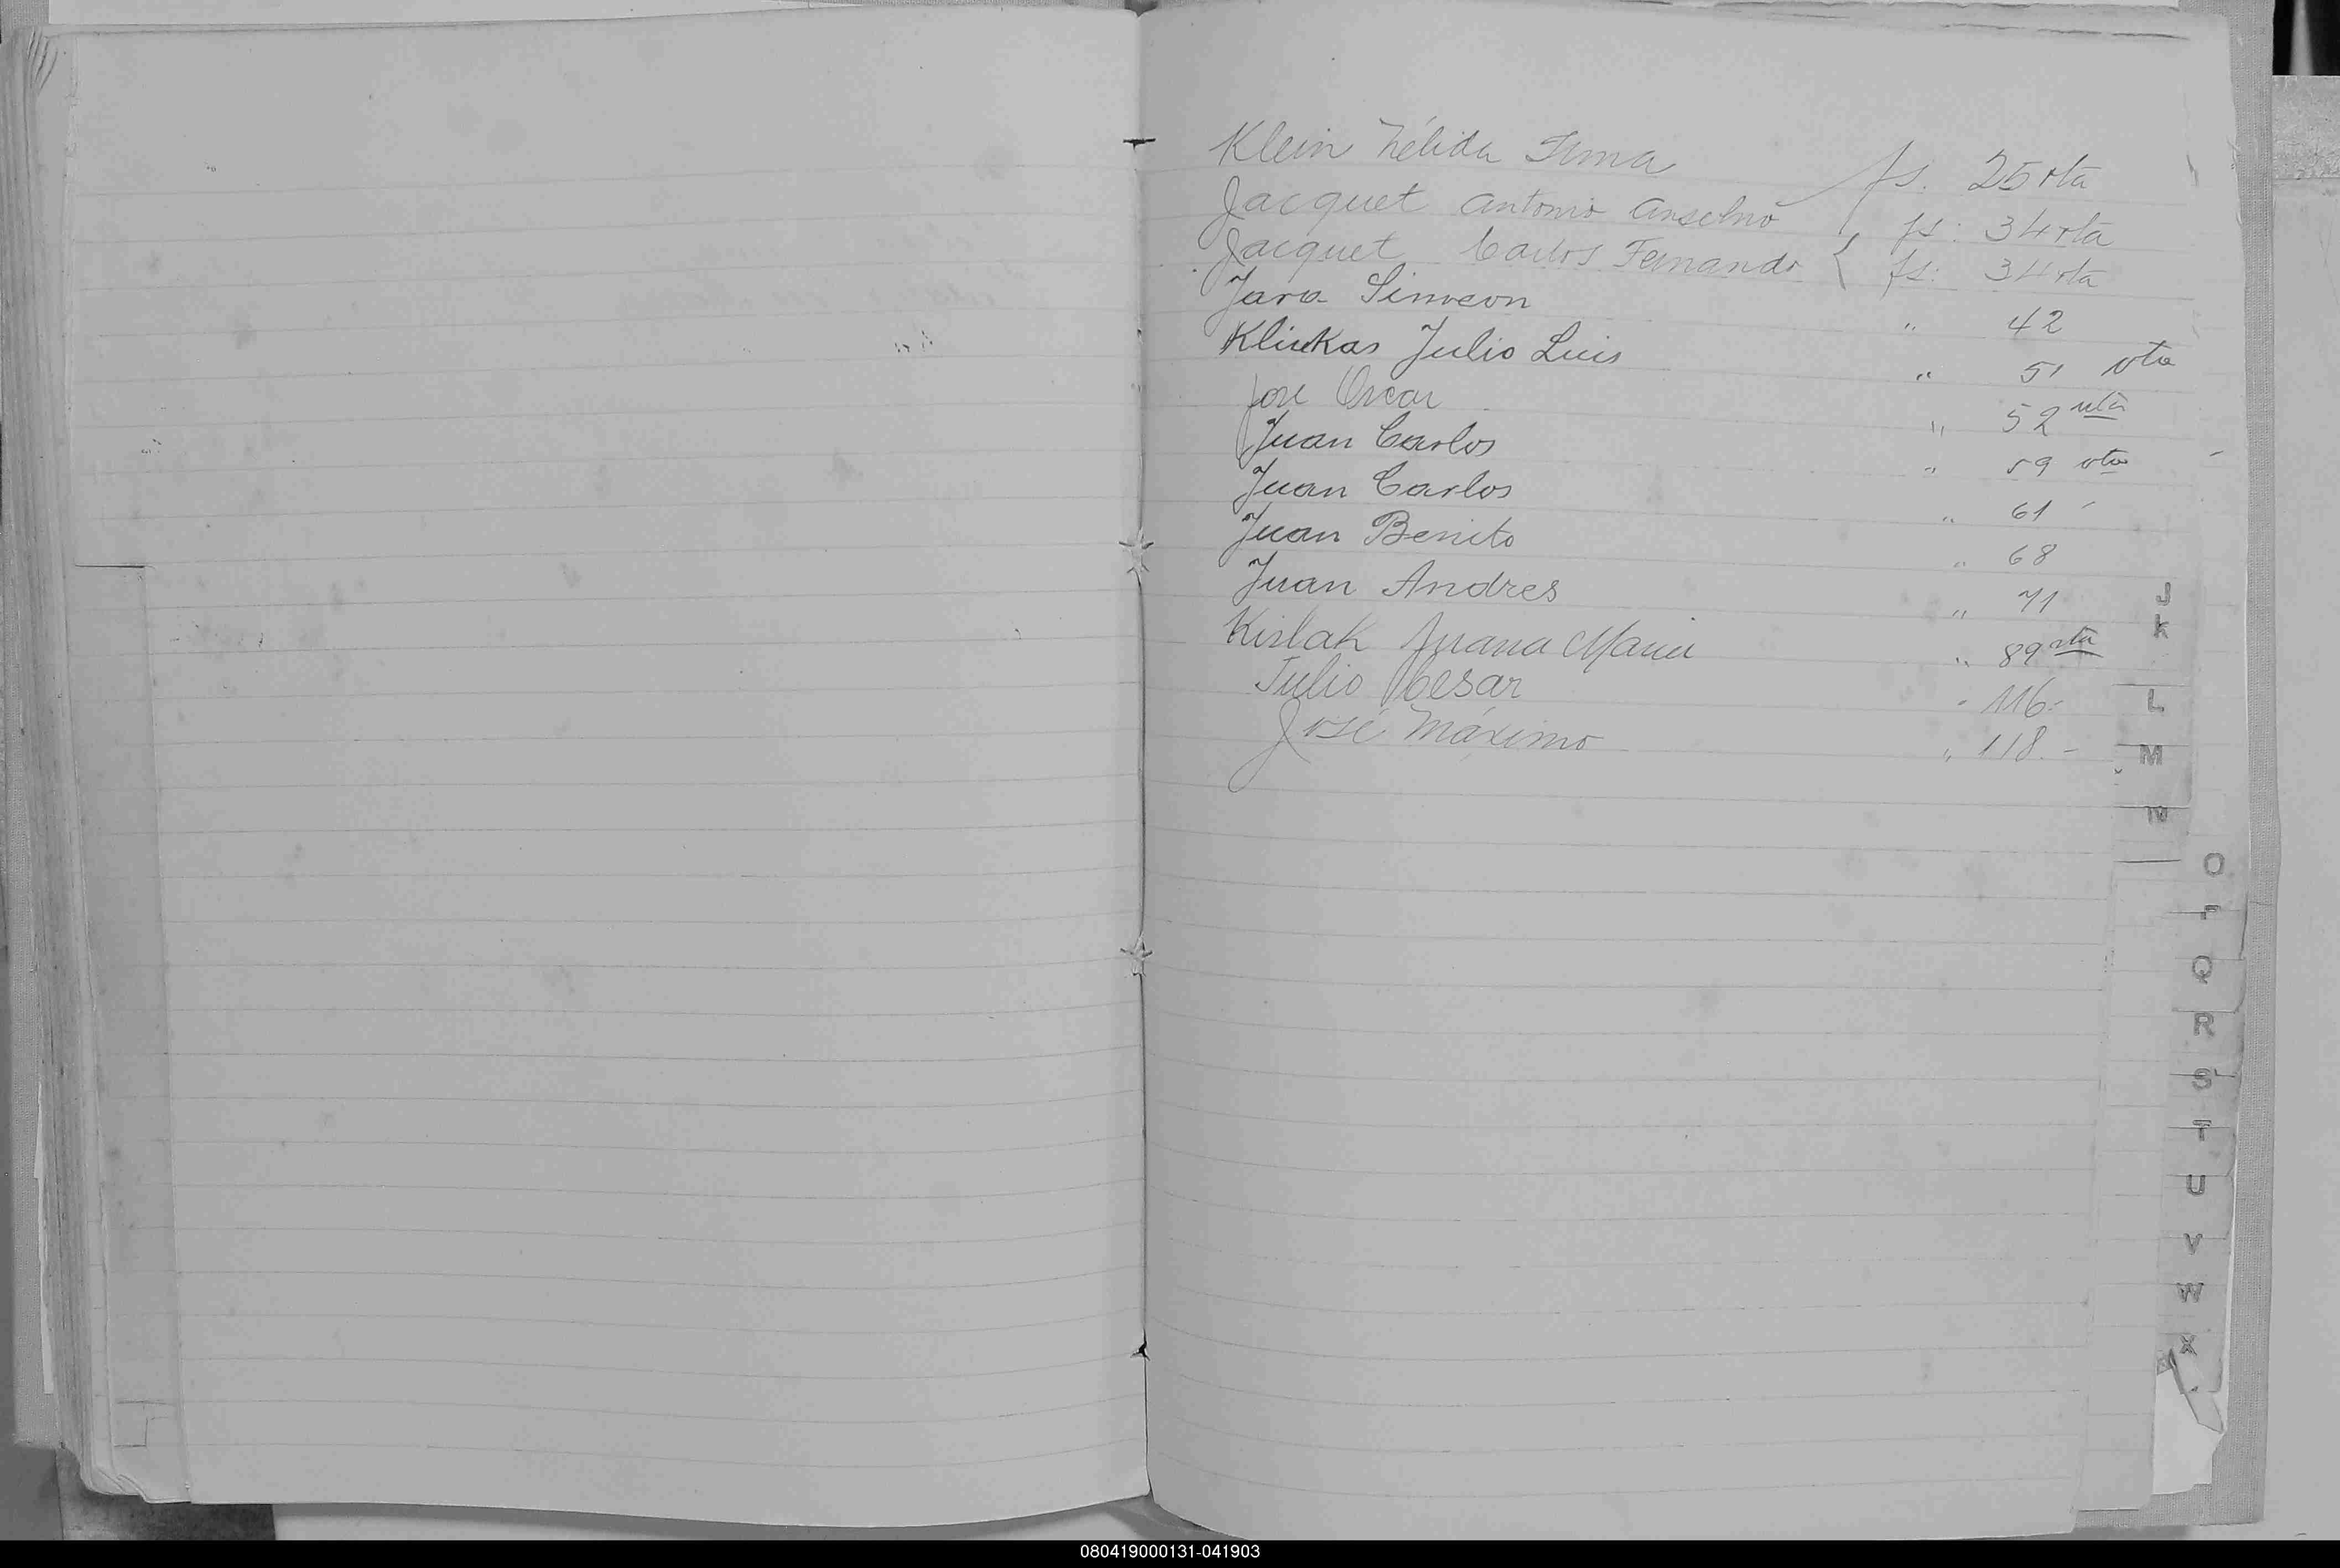 Klein Nélida Irma fs. 25 vta
Jacquet Antonio Anselmo fs: 34 vta
Jacquet Carlos Fernando fs: 34 vta
Jara Simeon " 42
Kliukas Julio Luis " 51 vta
Jose Oscar " 52 vta
Juan Carlos " 59 vta
Juan Carlos " 61
Juan Benito " 68
Juan Andres " 71
Kislak Juana Maria " 89 vta
Julio Cesar " 116-
José Máximo " 118.-
J
K
L
M
N
O
P
Q
R
S
T
U
V
W
X
080419000131-041903